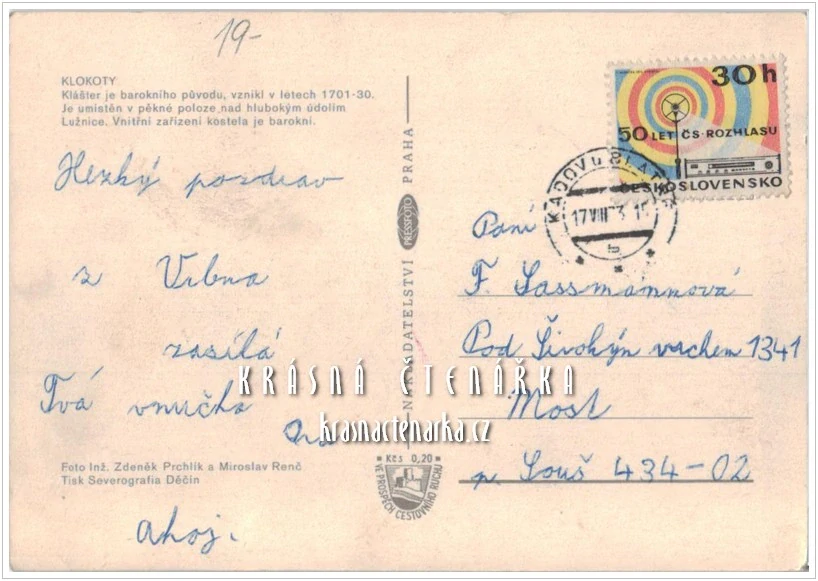 19-
KLOKOTY
Klášter je barokního původu, vznikl v létech 1701-30.
Je umístěn v pěkné poloze nad hlubokým údolím
Lužnice. Vnitřní zařízení kostela je barokní.
Hezký pozdrav
z Vrbna
zasílá
Tvá vnučka
Foto Inž. Zdeněk Prchlík a Miroslav Renč
Tisk Severografia Děčín
ahoj.
NAKLADATELSTVÍ PRESSFOTO PRAHA
Kčs 0,20
VE PROSPĚCH CESTOVNÍHO RUCHU
30h
50 LET ČS. ROZHLASU
ČESKOSLOVENSKO
KADOV u BLATNÉ
17.VIII.73
b
Paní
F. Sassmannová
Pod Šivohým vrchem 1341
Most
p. Souš 434-02
KRÁSNÁ ČTENÁŘKA
krasnactenarka.cz